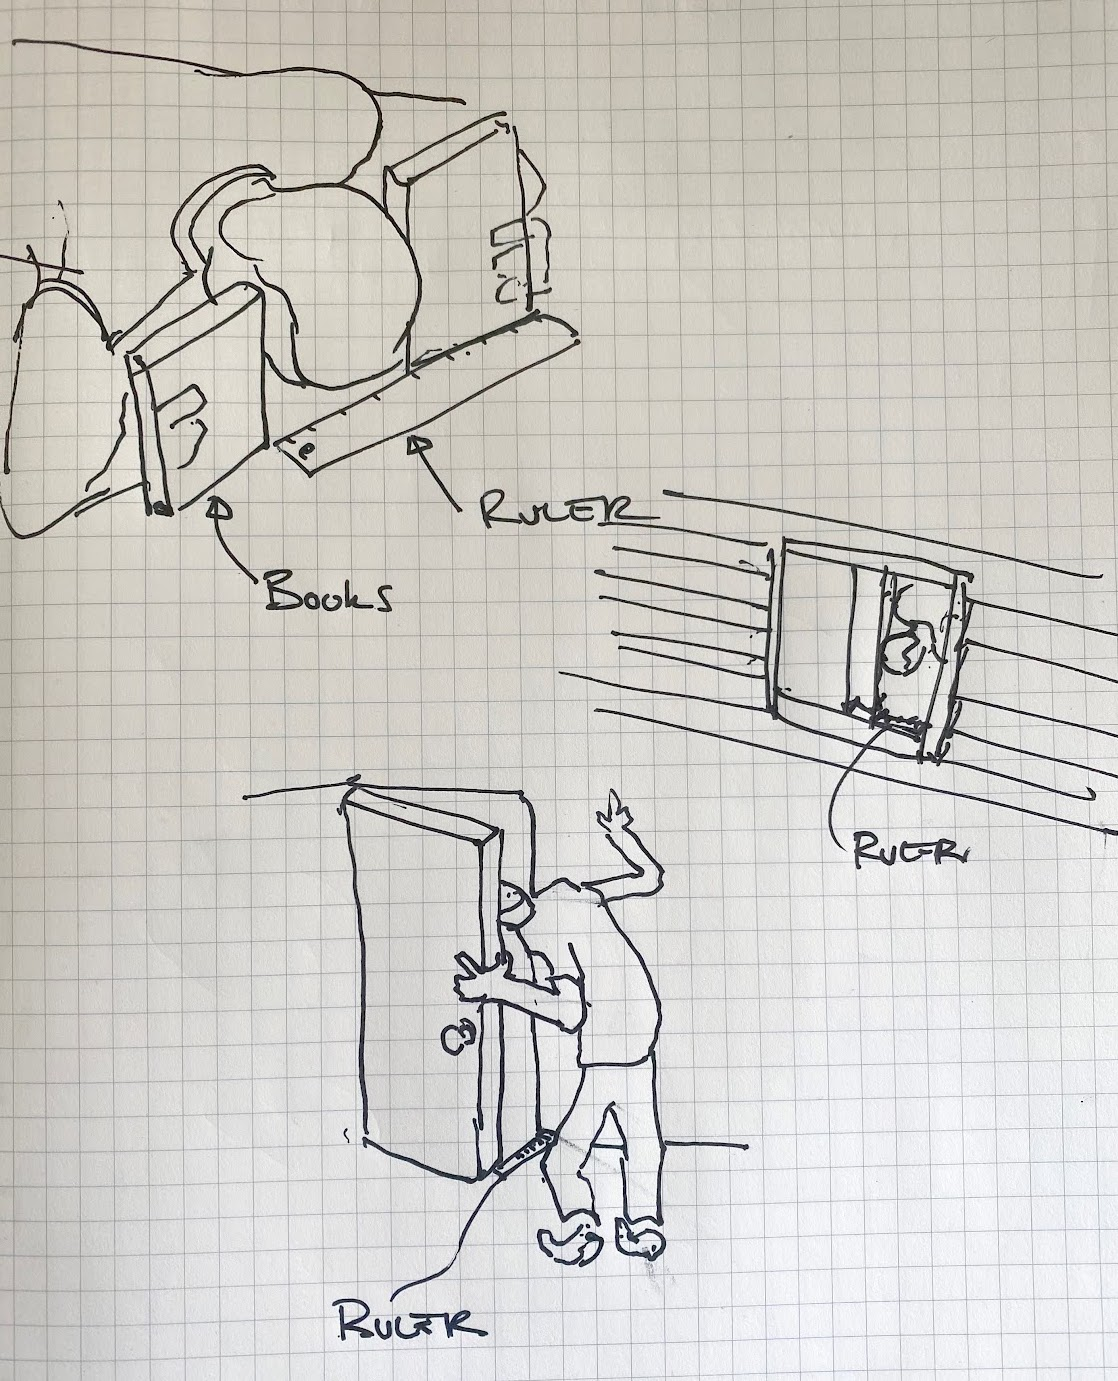 RULER
BOOKS
RULER
RULER